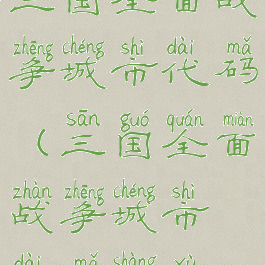 三国全面战
zhēng chéng shì dài mǎ
争城市代码
sān guó quán miàn
（三国全面
zhàn zhēng chéng shì
战争城市
dài mǎ shàng xù